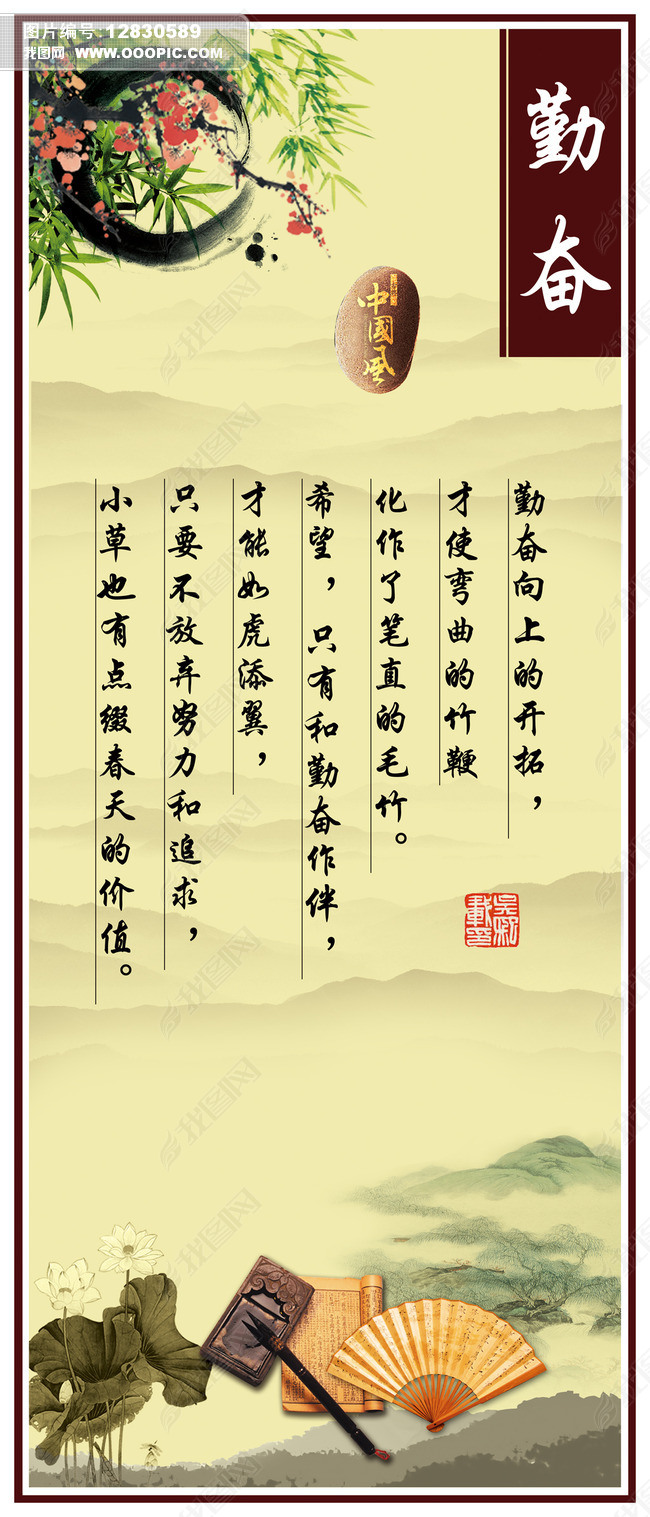 图片编号:12830589
我图网 WWW.OOOPIC.COM
勤奋
中國风
勤奋向上的开拓，
才使弯曲的竹鞭
化作了笔直的毛竹。
希望，只有和勤奋作伴，
才能如虎添翼，
只要不放弃努力和追求，
小草也有点缀春天的价值。